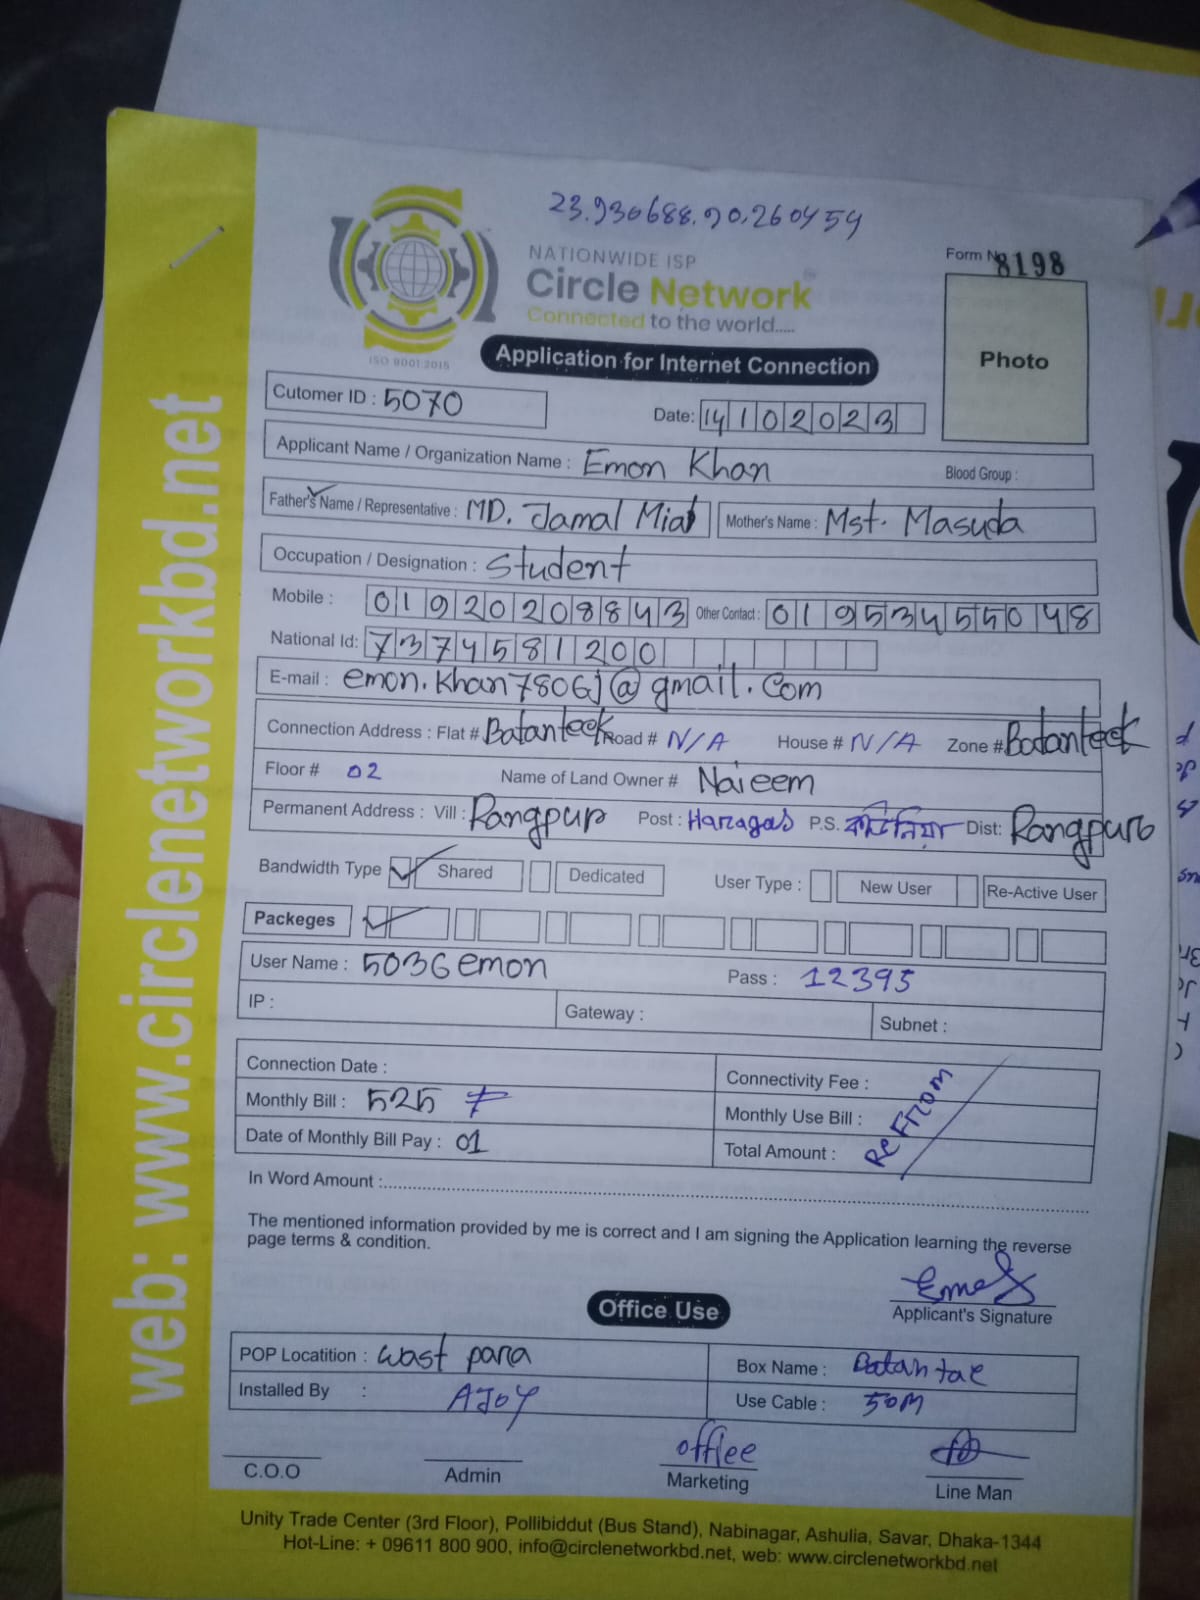 23.930688.90.260454
NATIONWIDE ISP
Circle Network
Connected to the world.....
ISO 9001:2015
Form No 8198
Photo
Application for Internet Connection
Cutomer ID : 5070
Date: 14102023
Applicant Name / Organization Name : Emon Khan Blood Group :
Father's Name / Representative : MD. Jamal Mia Mother's Name : Mst. Masuda
Occupation / Designation : Student
Mobile : 01920208843 Other Contact : 01953455048
National Id: 7374581200
E-mail : emon.khan7806j@gmail.com
Connection Address : Flat # Batanteek Road # N/A House # N/A Zone # Batanteek
Floor # 02 Name of Land Owner # Naieem
Permanent Address : Vill : Rangpur Post : Haragas P.S. Dist: Rangpur
Bandwidth Type Shared Dedicated User Type : New User Re-Active User
Packeges
User Name : 5036emon Pass : 12395
IP : Gateway : Subnet :
Connection Date : Connectivity Fee :
Monthly Bill : 525 Monthly Use Bill :
Date of Monthly Bill Pay : 01 Total Amount :
ReFrom
In Word Amount :
The mentioned information provided by me is correct and I am signing the Application learning the reverse
page terms & condition.
Applicant's Signature
Office Use
POP Locatition : wast para Box Name : Batantae
Installed By : AJOY Use Cable : 50M
C.O.O Admin office Marketing Line Man
Unity Trade Center (3rd Floor), Pollibiddut (Bus Stand), Nabinagar, Ashulia, Savar, Dhaka-1344
Hot-Line: + 09611 800 900, info@circlenetworkbd.net, web: www.circlenetworkbd.net
web: www.circlenetworkbd.net